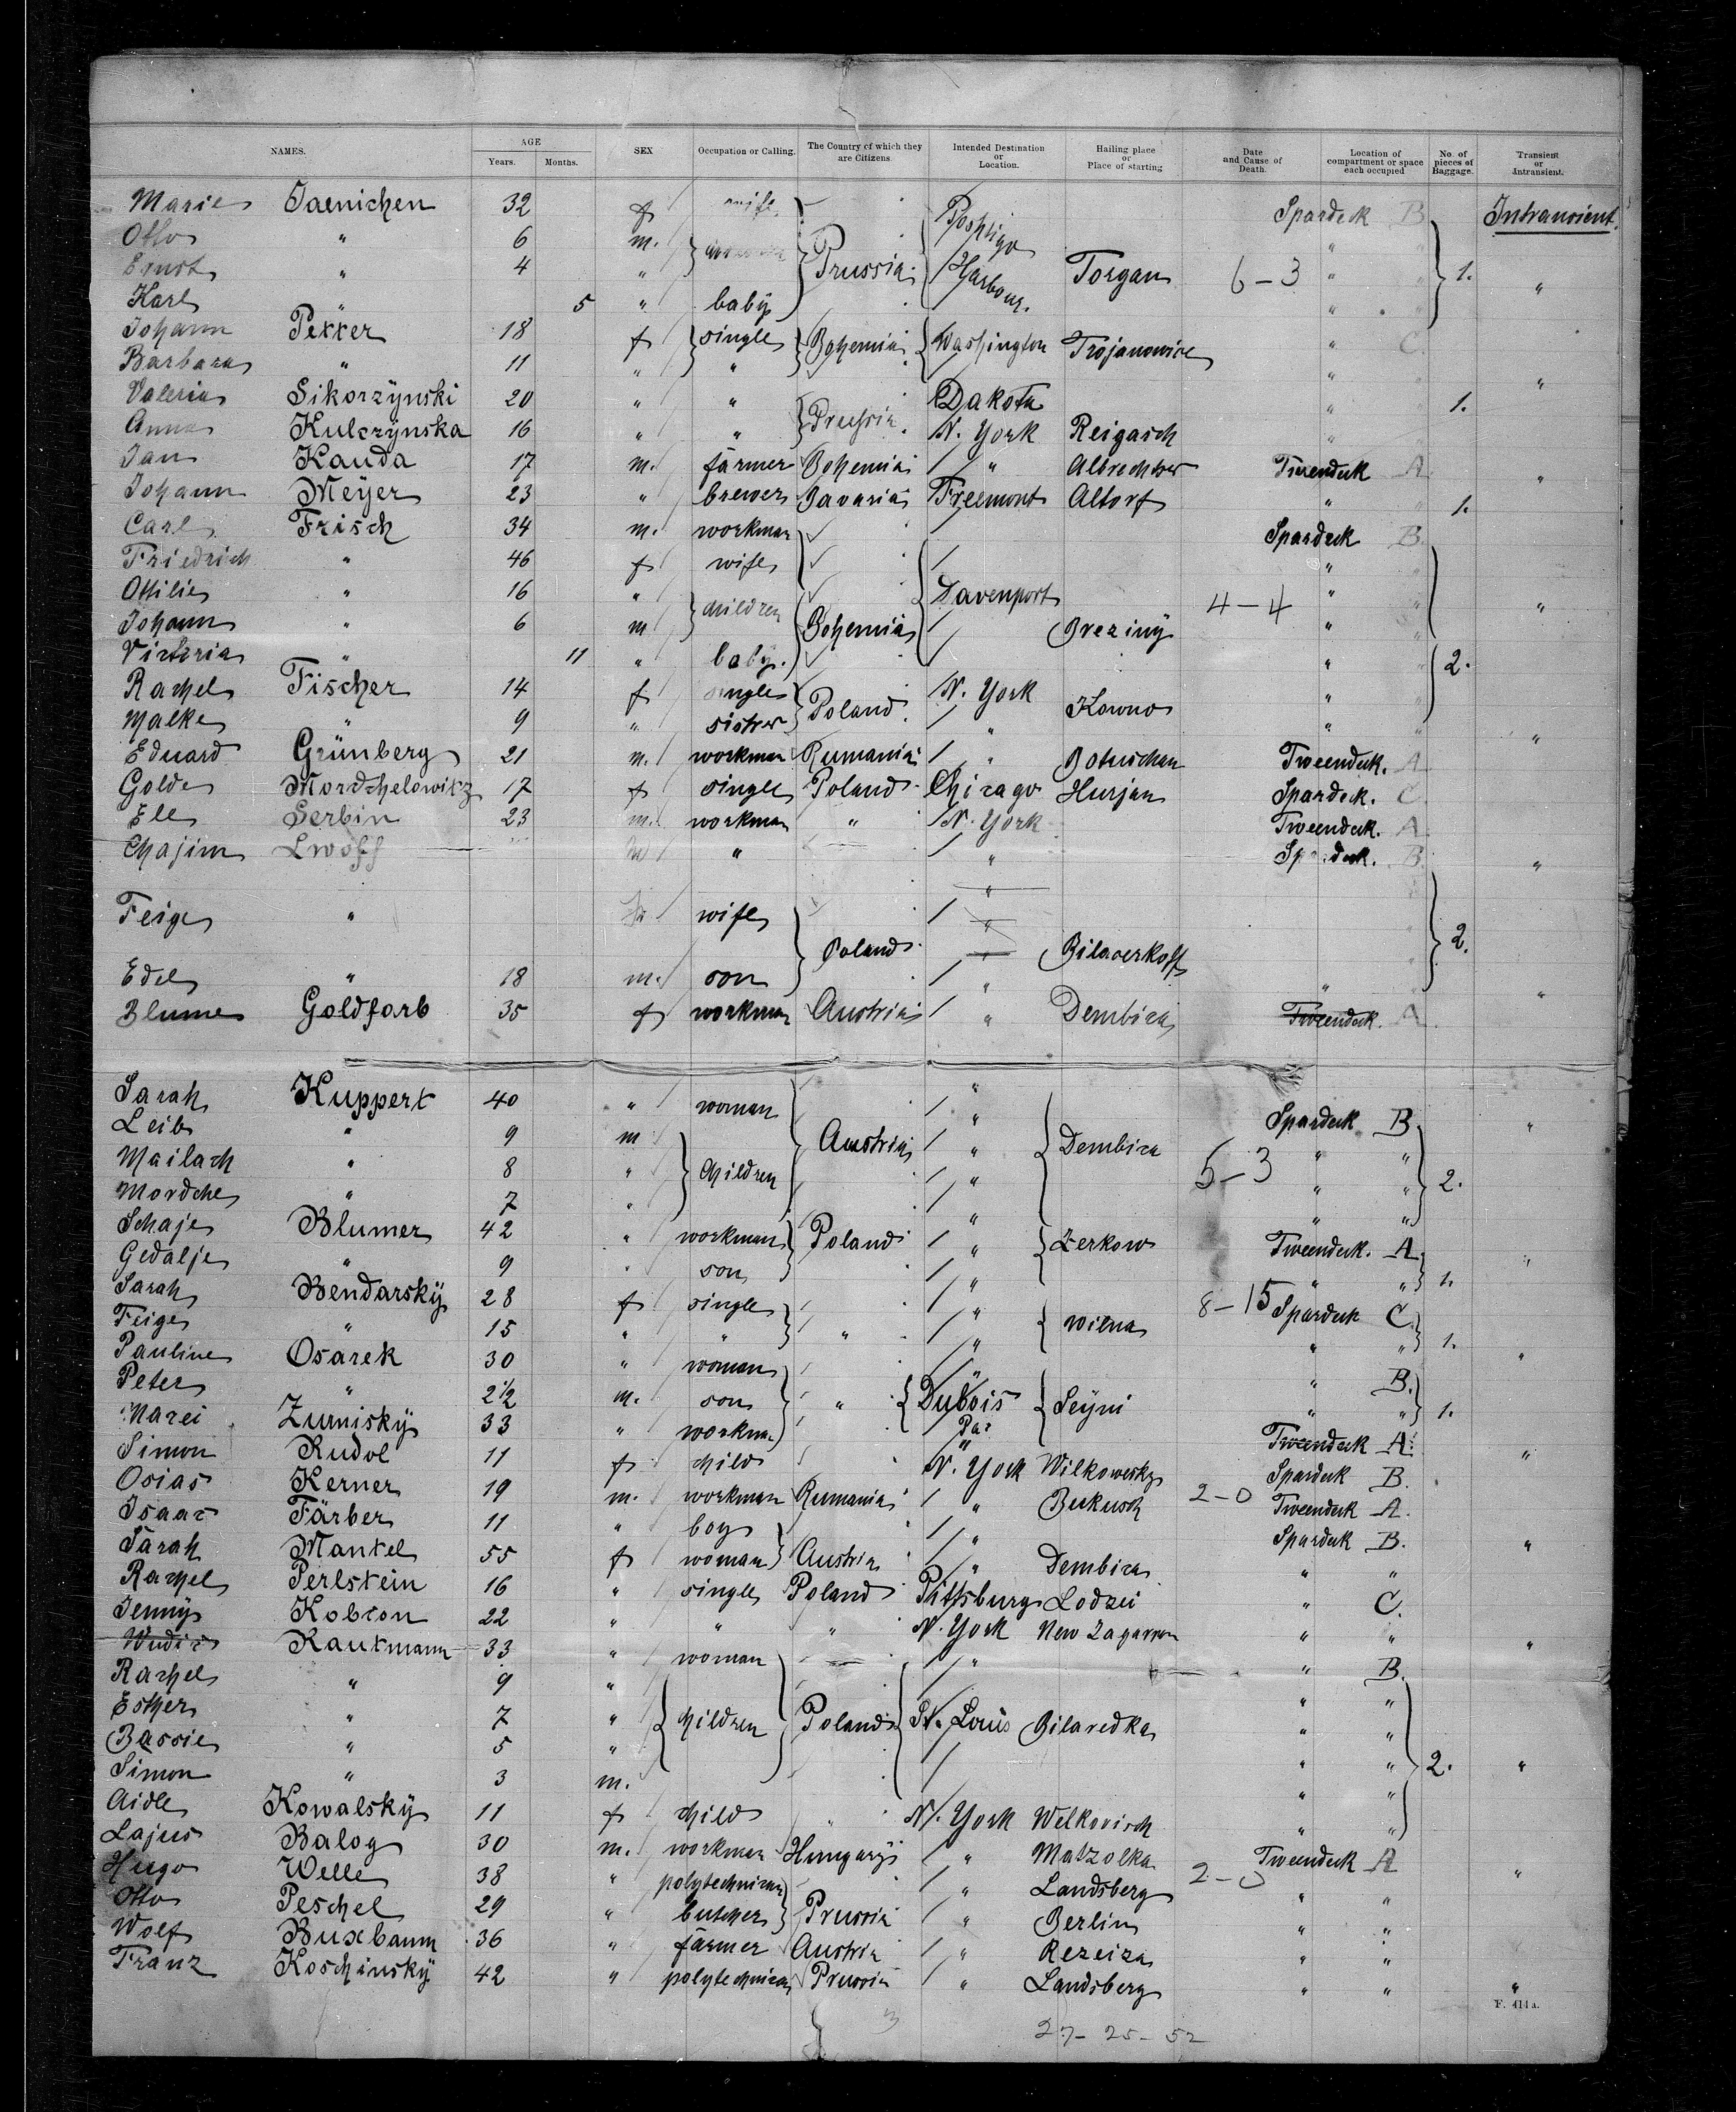 NAMES. AGE Years. Months. SEX Occupation or Calling. The Country of which they are Citizens. Intended Destination or Location. Hailing place or Place of starting Date and Cause of Death. Location of compartment or space each occupied No. of pieces of Baggage. Transient or Intransient.
Marie Jaenichen 32 f wife Spardeck B Intransient.
Otto " 6 m. "
Ernst " 4 " Prussia Harbour. Torgau 6-3 " 1. "
Karl " 5 " baby "
Johann Pekker 18 f single Bohemia Washington Trojanowice " C.
Barbara " 11 " " " "
Valeria Sikorzÿnski 20 " " Preussia Dakota " 1.
Anna Kulczÿnska 16 " " N. York Reigasch "
Jan Kauda 17 m. farmer Bohemia " Tweendeck A "
Johann Meÿer 23 " brewer Bavaria Freemont Altorf " " 1.
Carl Frisch 34 m. workman Spardeck B.
Friedrich " 46 f wife " "
Ottilie " 16 " children Davenport 4-4 " " "
Johann " 6 m Bohemia Breziny " "
Victoria " 11 " baby. " " 2.
Rachel Fischer 14 f single Poland N. York Kowno " "
Malke " 9 " sister " " " "
Eduard Grünberg 21 m. workman Rumania " Botuschan Tweendeck. A
Golde Mordchelowitz 17 f single Poland Chicago Hurjan Spardeck. C.
Ele Serbin 23 m. workman " N. York Tweendeck. A
Chajim Lwoff " " Spardeck. B "
Feige " wife Poland " Bilacerkoff 2.
Edel " 18 m. son " " "
Blume Goldfarb 35 f workman Austria " Dembica Tweendeck. A
Sarah Kuppert 40 " woman Austria " Dembica Spardeck B "
Leib " 9 m " 5-3 " "
Mailach " 8 " children " " " 2.
Mordche " 7 " " " "
Schaje Blumer 42 " workman Poland " Zerkow Tweendeck. A "
Gedalje " 9 " son " " " 1.
Sarah Bendarskÿ 28 f single " " Wilna 8-15 Spardeck C
Feige " 15 " " " " " 1. "
Pauline Osarek 30 " woman " Dubois Seyni " B.
Peter " 2½ m. son Pa. " " 1.
Marei Zurniskÿ 33 " workman " Tweendeck A. "
Simon Rudol 11 f child N. York Wilkowesky Spardeck B.
Osias Kerner 19 m. workman Rumania " Bukusch 2-0 Tweendeck A.
Isaac Färber 11 " boy " Spardeck B. "
Sarah Mantel 55 f woman Austria " Dembica " "
Rachel Perlstein 16 " single Poland Pittsburg Lodzei " C.
Jenny Kobron 22 " " " N. York New Zagarren " " "
Kaufmann 33 " woman " " B.
Rachel " 9 " " "
Esther " 7 " children Poland St. Louis Bilaredka " "
Bassie " 5 " " " 2. "
Simon " 3 m. " "
Aidle Kowalskÿ 11 f child " N. York Welkovisch " "
Lajus Balog 30 m. workman Hungary " Matzolka Tweendeck A "
Hugo Welle 38 " polytechnican Prussia " Landsberg " "
Otto Peschel 29 " butcher " Berlin " "
Wolf Buxbaum 36 " farmer Austria " Rezeiza " "
Franz Koschinskÿ 42 " polytechnican Prussia " Landsberg " " "
F. 414a.
27-25-52